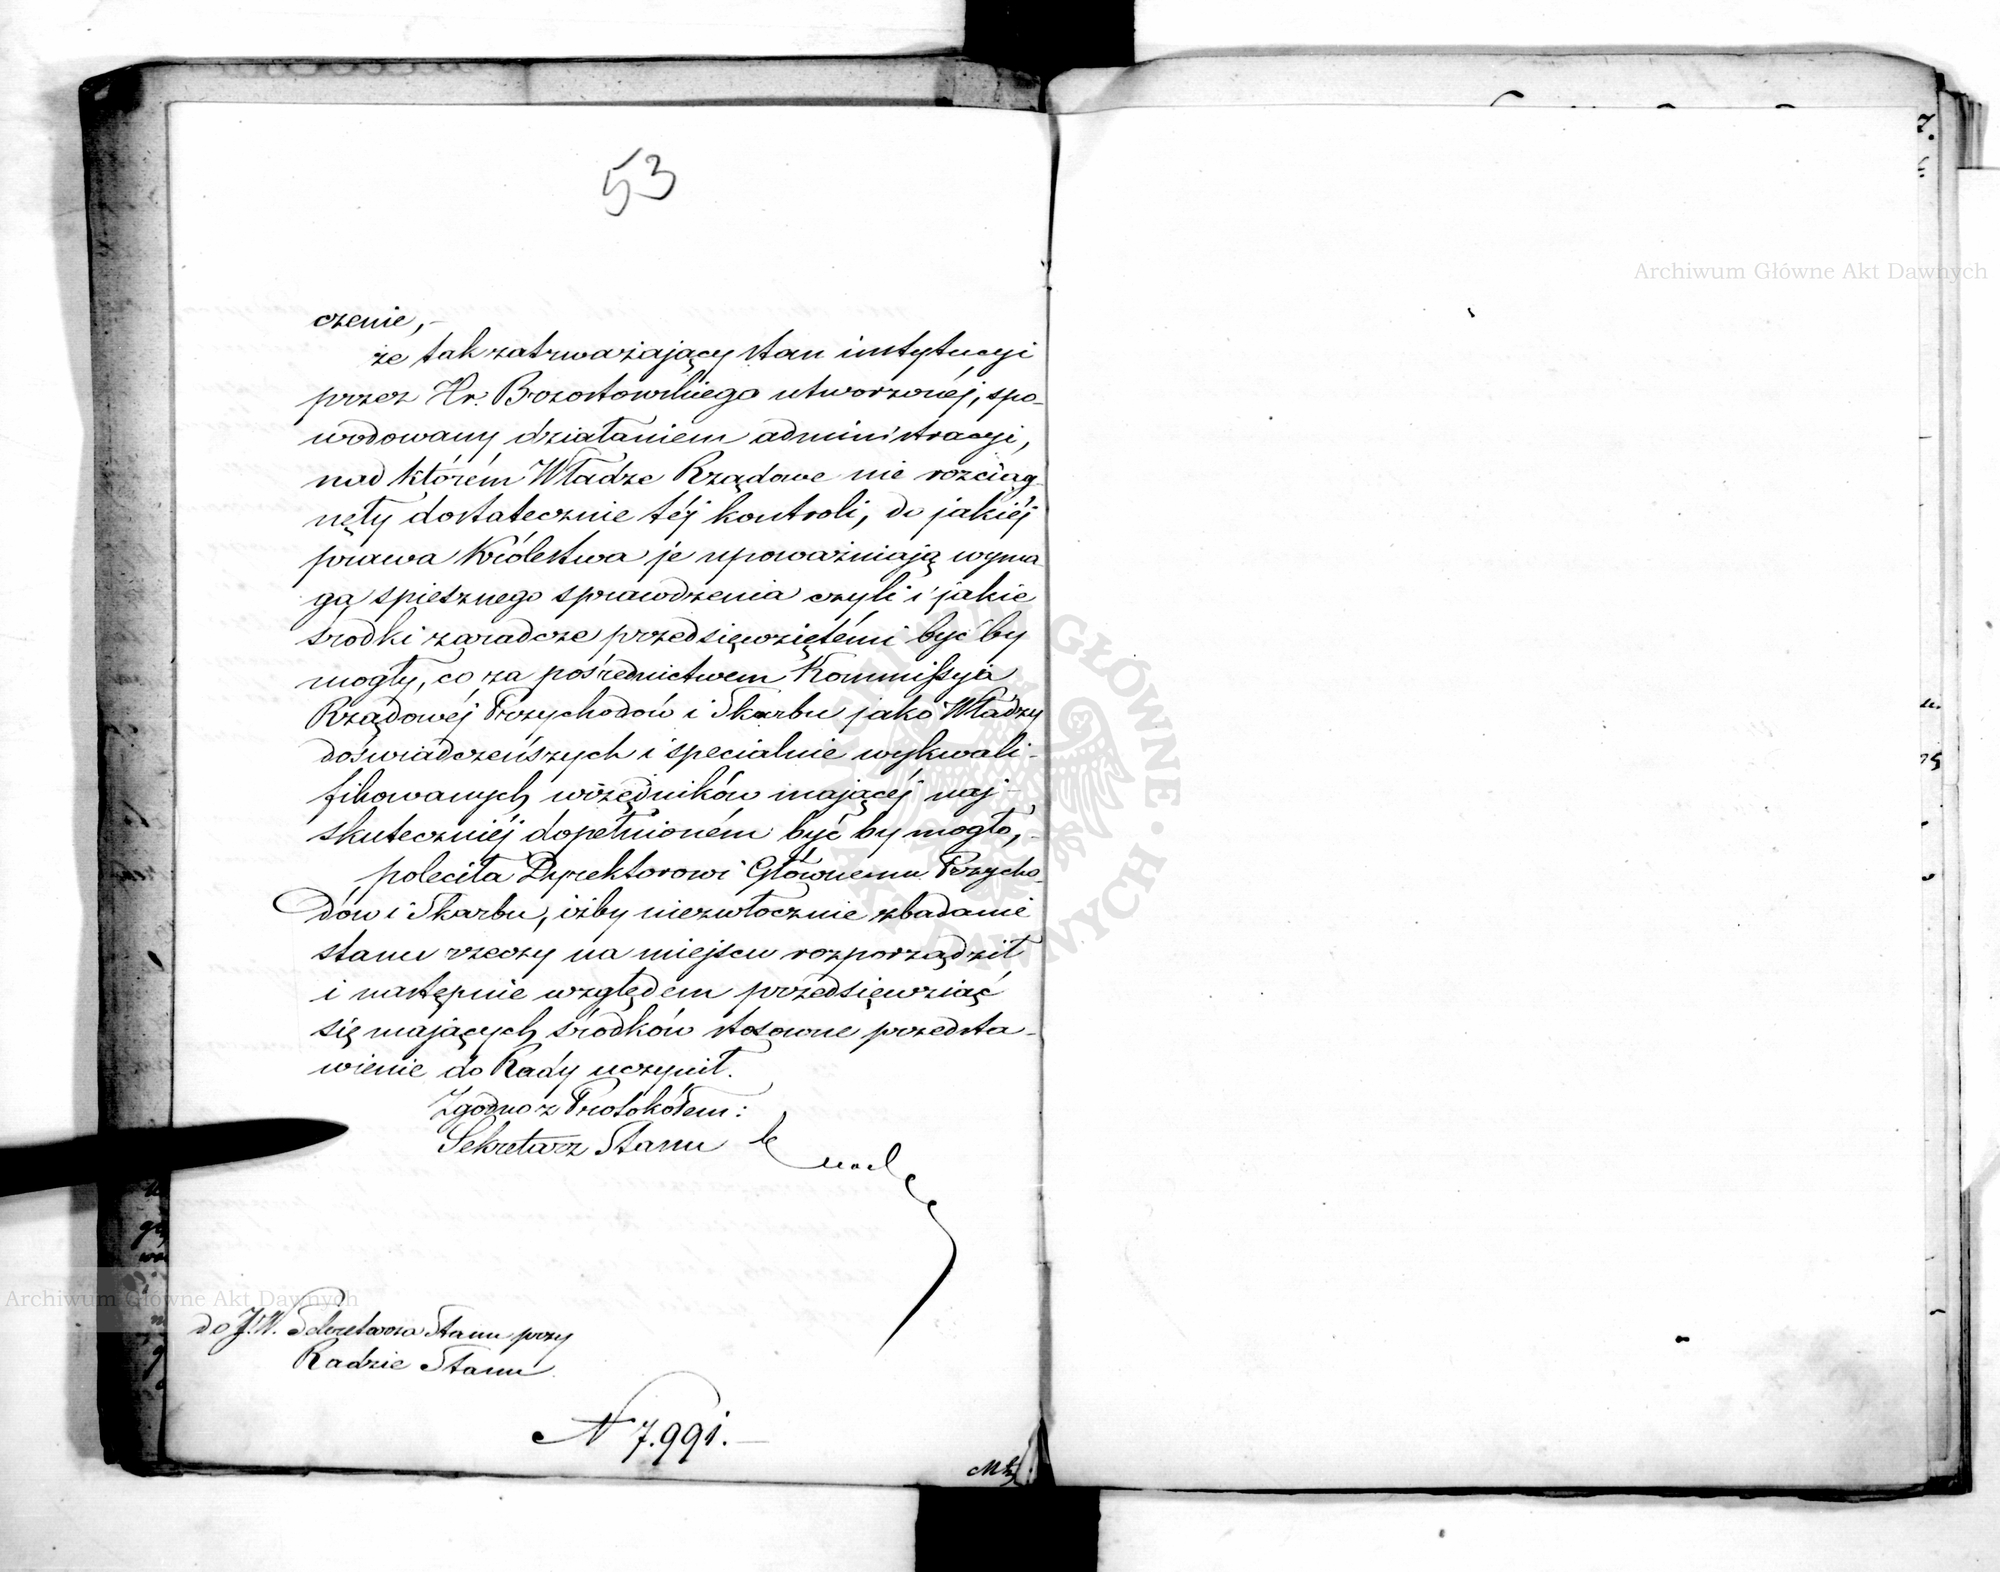 53
czenie,-
że tak zatrważający stan instytucyi
przez Hr. Brzostowskiego utworzonéj, spo-
wodowany działaniem administracyi,
nad którém Władze Rządowe nie rozciąg-
nęły dostatecznie téj kontroli, do jakiéj
prawa Królestwa je upoważniają wyma-
ga spiesznego sprawdzenia czyli i jakie
środki zaradcze przedsięwziętémi być by
mogły, co za pośrednictwem Kommissyi
Rządowéj Przychodów i Skarbu jako Władzy
doświadczeńszych i specialnie wykwali-
fikowanych urzędników mającéj naj-
skuteczniéj dopełnioném być by mogło,-
poleciła Dyrektorowi Głównemu Przycho-
dów i Skarbu, iżby niezwłocznie zbadanie
stanu rzeczy na miejscu rozporządził
i następnie względem przedsięwziąć
się mających środków stosowne przedsta-
wienie do Rady uczynił.
Zgodno z Protokółem:
Sekretarz Stanu
do J.W. Sekretarza Stanu przy
Radzie Stanu.
N 7.991.-
Archiwum Główne Akt Dawnych
Archiwum Główne Akt Dawnych
ARCHIWUM GŁÓWNE AKT DAWNYCH